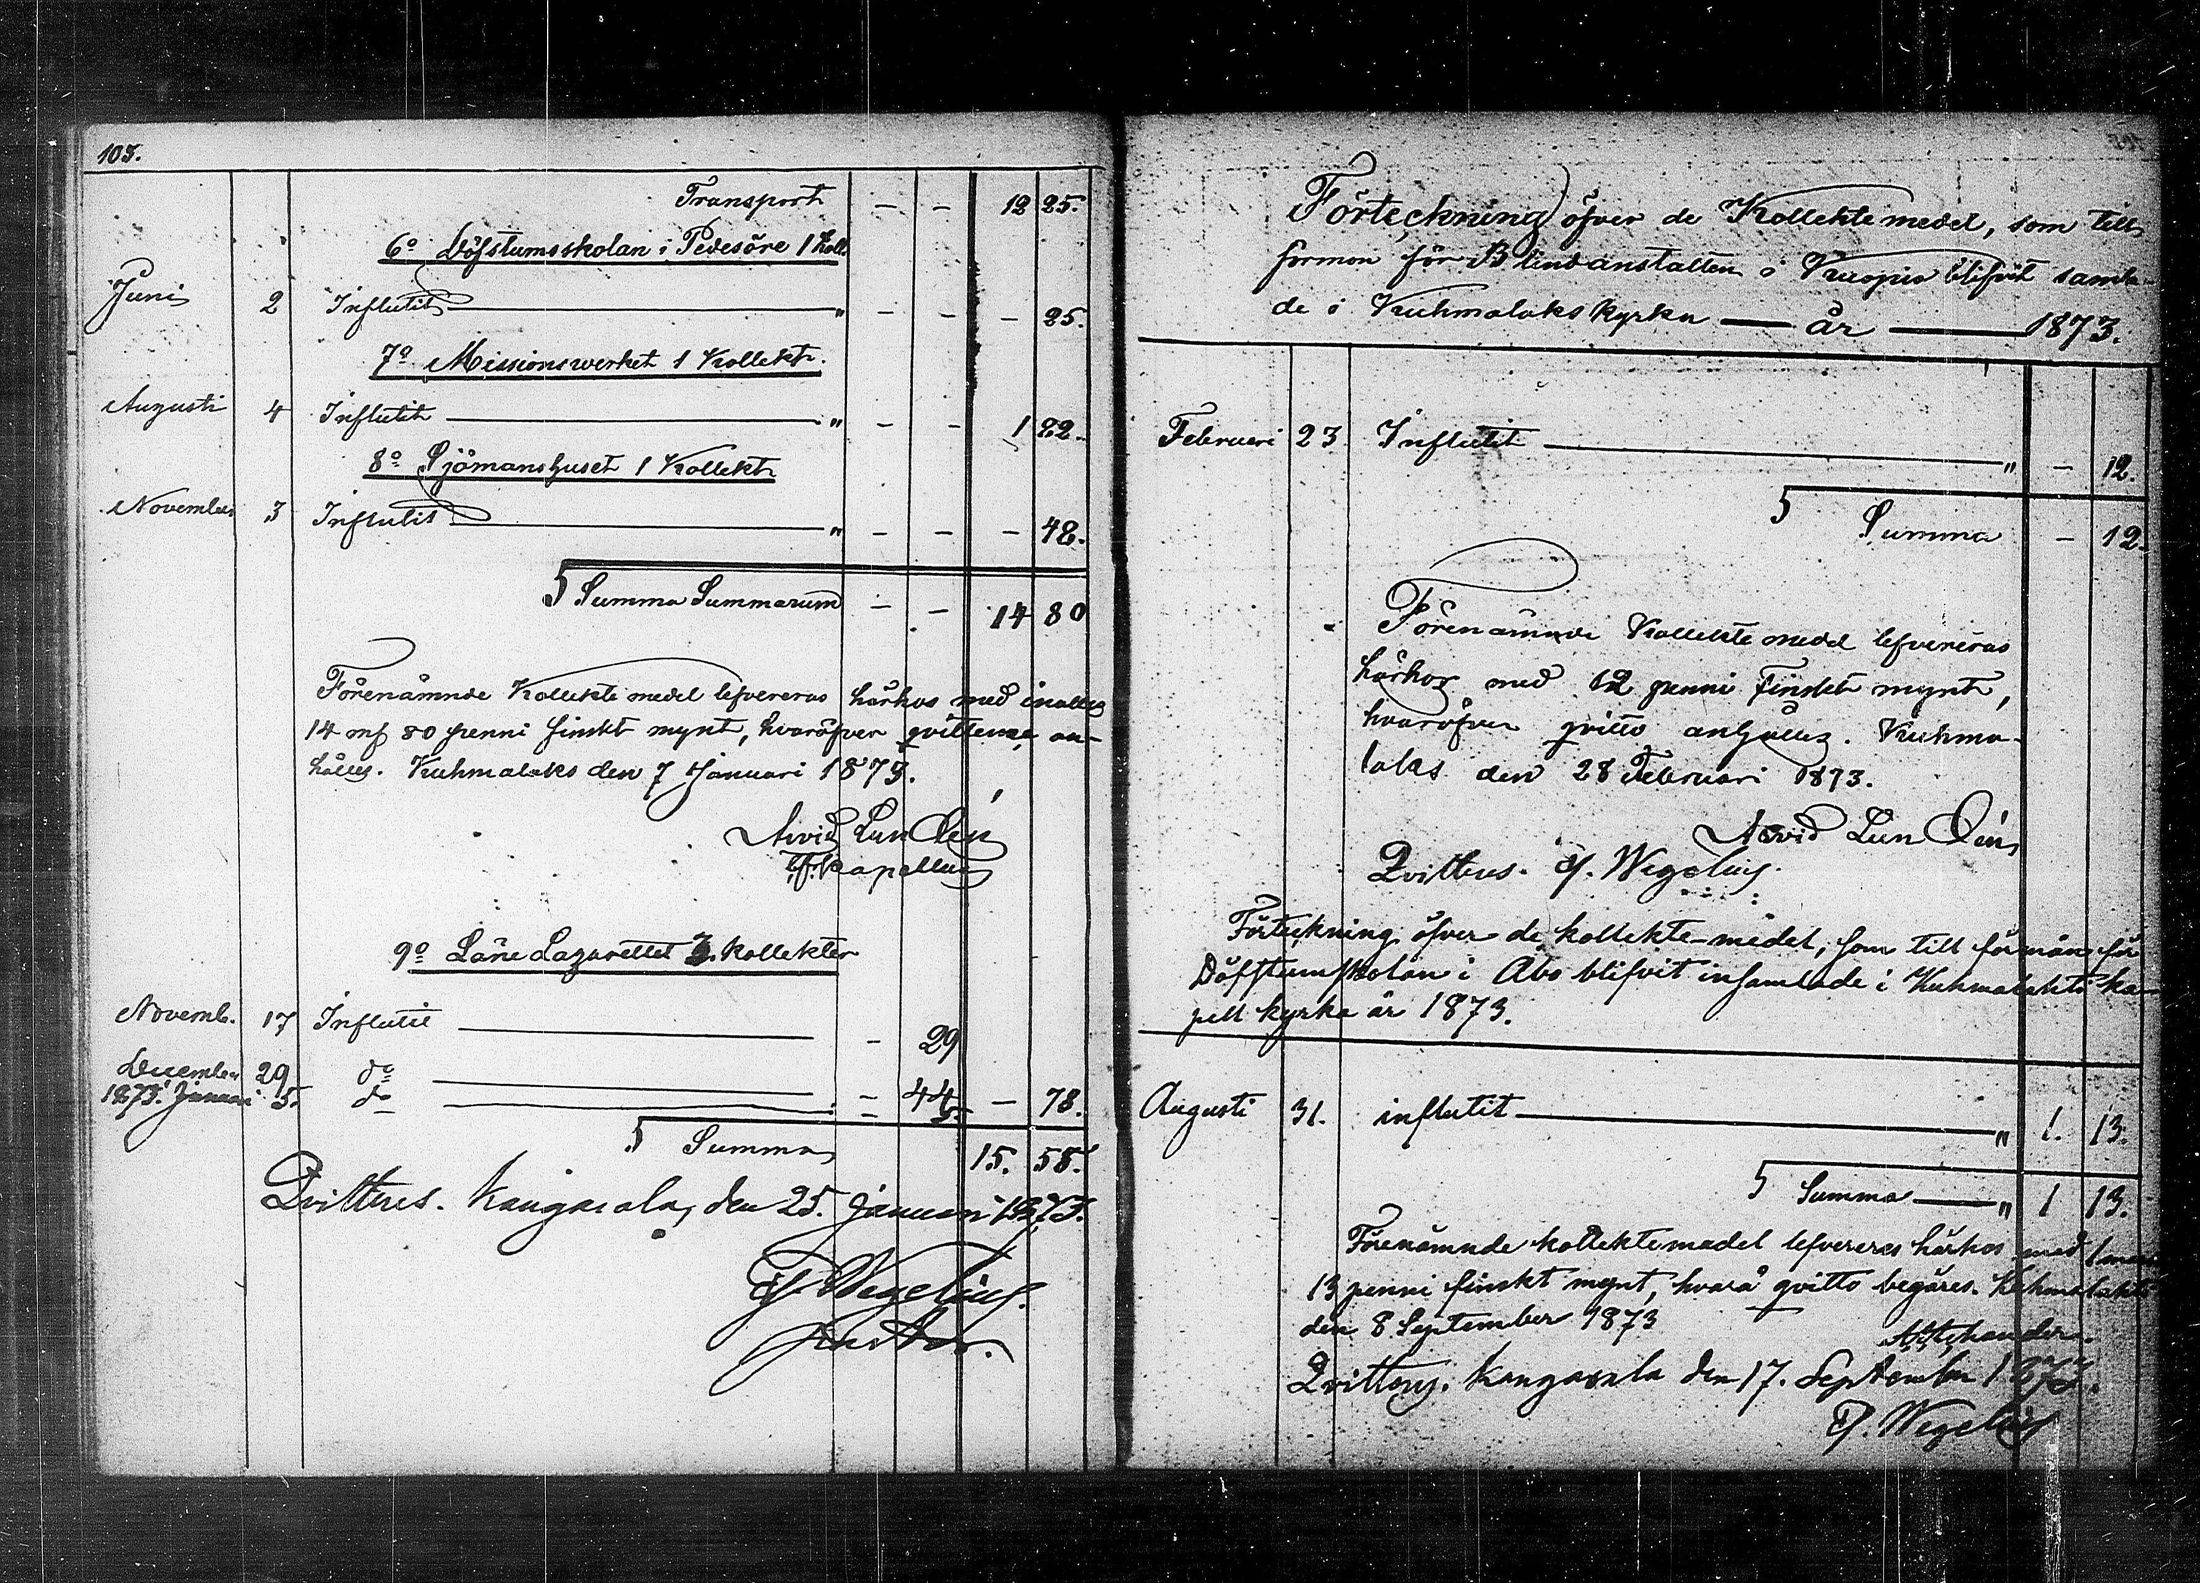 103.
Transport — — 12 25.
6o Döfstumsskolan i Pedesöre 1 Koll.
Juni 2 Influtit " — — — 25.
7o Missionswerket 1 Kollekt.
Augusti 4 Influtit " — — 1 82.
8o Sjömanshuset 1 Kollekt
November 3 Influtit " — — — 48.
Summa Summarum — — 14 80
Förenämnde Kollektemedel lefvereras härhos med inalles
14 mf 80 penni finskt mynt, hvaröfver qvittense an-
hålles. Kuhmalaks den 7 Januari 1873.
Arvid Lundén
Kapellan
9o Läne Lazarettet 3. Kollekter
Novemb. 17 Influtit — 29
December 29 do — 44
1873. Januari 5. do — 5. — 78.
Summa 15. 58.
Qvitteras. Kangasala, den 25. Januari 1873.
Wegelius.
Pastor.
Förteckning öfver de Kollektemedel, som till
förmon för Blindanstalten i Kuopio blifvit samla-
de i Kuhmalaks kyrka — år — 1873.
Februari 23 Influtit " — 12.
Summa — 12.
Förenämnde Kollektemedel lefvereras
härhos med 12 penni Finskt mynt,
hvaröfver qvitto anhålles. Kuhma-
laks den 28 Februari 1873.
Arvid Lundén
Qvitteras. Wegelius.
Förteckning öfver de kollekte-medel, som till förmån för
Döfstumskolan i Åbo blifvit insamlade i Kuhmalahti ka-
pell kyrka år 1873.
Augusti 31. influtit " 1. 13.
Summa " 1 13.
Förenämnde kollektemedel lefvereras härhos med 1 mark
13 penni finskt mynt, hvarå qvitto begäres. Kuhmalahti
den 8 September 1873
Qvitteras. Kangasala den 17. September 1873.
Wegelius